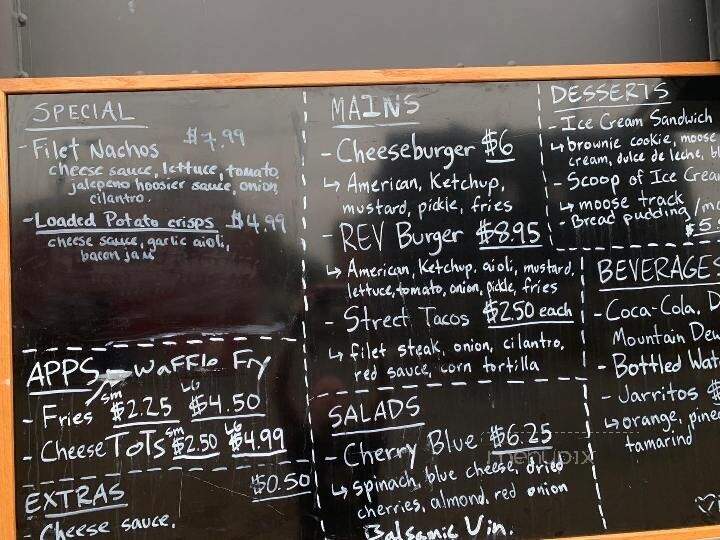 SPECIAL
- Filet Nachos $7.99
cheese sauce, lettuce, tomato,
jalepeno hoosier sauce, onion
cilantro.
- Loaded Potato crisps $4.99
cheese sauce, garlic aioli,
bacon jam
APPS - Waffle Fry
- Fries sm $2.25 LG $4.50
- Cheese ToTs sm $2.50 LG $4.99
EXTRAS $0.50
- Cheese sauce,
MAINS
- Cheeseburger $6
↳ American, Ketchup,
mustard, pickle, fries
- REV Burger $8.95
↳ American, Ketchup, aioli, mustard,
lettuce, tomato, onion, pickle, fries
- Street Tacos $2.50 each
↳ filet steak, onion, cilantro,
red sauce, corn tortilla
SALADS
- Cherry Blue $6.25
↳ spinach, blue cheese, dried
cherries, almond, red onion
Balsamic Vin.
DESSERTS
- Ice Cream Sandwich
↳ brownie cookie, moose
cream, dulce de leche, bl
- Scoop of Ice Crea
↳ moose track
- Bread pudding
$5.
BEVERAGES
- Coca-Cola, D
Mountain Dew
- Bottled Wat
- Jarritos $
↳ orange, pine
tamarind
menupix